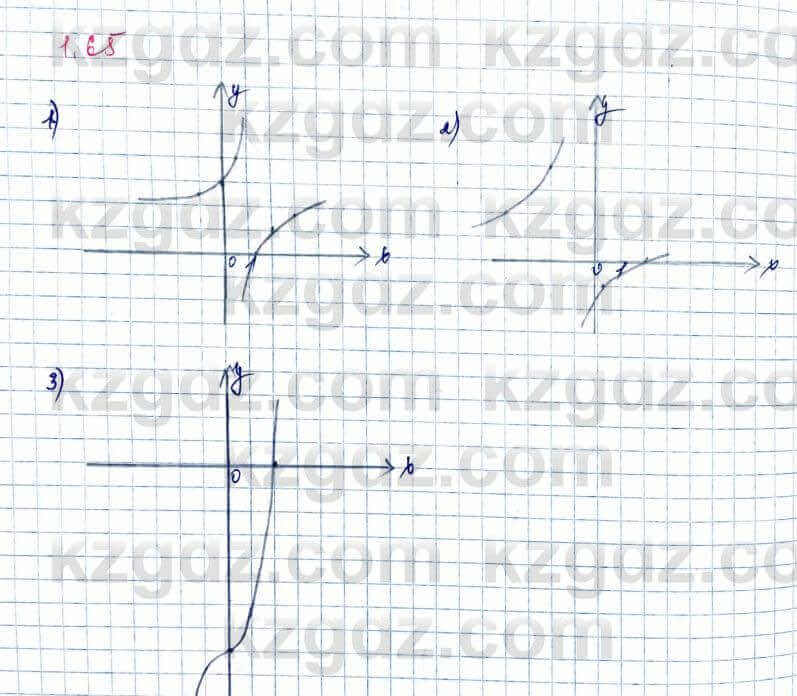 1.65
1)
y
0 1 x
2)
y
0 1 x
3)
y
0 x
kzgdz.com kzgdz.com
kzgdz.com
kzgdz.com kzgdz.com
kzgdz.com
kzgdz.com kzgdz.com
kzgdz.com
kzgdz.com kzgdz.com
kzgdz.com